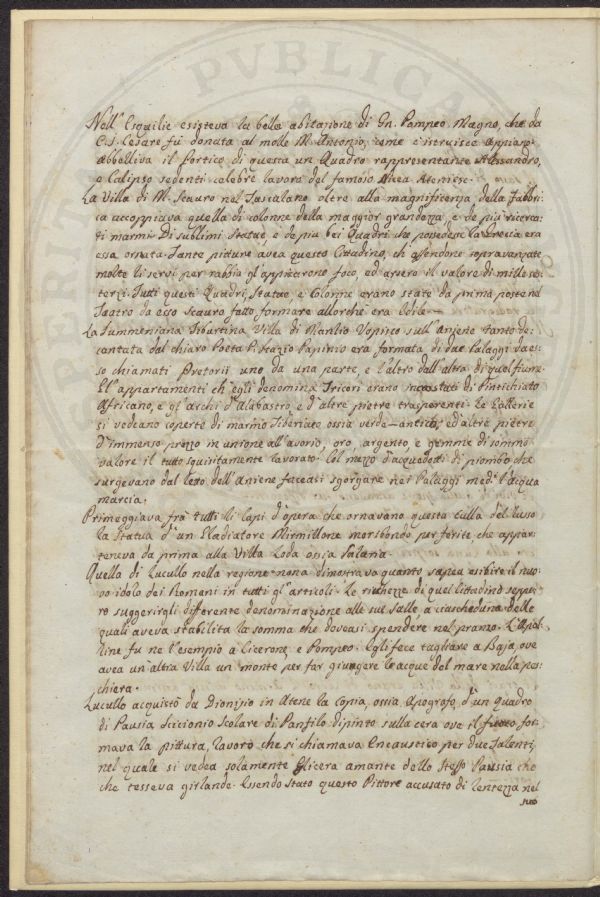 Nell' Esquilie esisteva la bella abitazione di Gn. Pompeo Magno, che da
C. J. Cesare fu donata al molle M. Antonio, come c'istruisce Appiano.
Abbelliva il Portico di questa un Quadro rappresentante Alessandro,
e Calipso sedenti celebre lavoro del famoso Nicea Ateniese.
La Villa di M. Scauro nel Tusculano oltre alla magnificenza della Fabbri-
ca accoppiava quella di colonne della maggior grandezza, e de più ricerca-
ti marmi. Di sublimi Statue, e de più bei Quadri che possedesse la Grecia era
essa ornata. Tante pitture avea questo Cittadino, ch' essendone sopravanzate
molte li servi per rabbia gl' appiccarono foco, ed arsero il valore di mille
terzi. Tutti questi Quadri, Statue, e Colonne erano state da prima poste nel
Teatro da esso Scauro fatto formare allorchè era Edile.
La Summeniana Tiburtina Villa di Manlio Vopisco sull' Aniene tanto de-
cantata dal chiaro Poeta P. Stazio Papinio era formata di due Palaggi da es-
so chiamati Pretorii uno da una parte, e l'altro dall' altra di quel fiume.
Gl' appartamenti ch' egli denomina Tricori erano incrostati di Pintichiato
Africano, e gl' archi d' Alabastro e d' altre pietre trasparenti. Le Gallerie
si vedeano coperte di marmo Tiberiato ossia verde-antico, ed altre pietre
d' immenso prezzo in unione all' avorio, oro, argento e gemme di sommo
valore il tutto squisitamente lavorato. Col mezzo d' acquedotti di piombo che
surgevano dal letto dell' Aniene faceasi sgorgare nei Palaggi med.i l' acqua
marcia.
Primeggiava frà tutti li capi d' opera che ornavano questa culla del lusso
la Statua d' un Gladiatore Mirmillone moribondo per ferite, che appar-
teneva da prima alla Villa Loda ossia Salaria.
Quella di Lucullo nella regione nona dimostrava quanto sapea esibire il nuo-
vo idolo dei Romani in tutti gl' articoli. Le richezze di quel Cittadino seppe-
ro suggerirgli differente denominazione alle sue Salle, a ciascheduna delle
quali aveva stabilita la somma che doveasi spendere nel pranzo. L' Apol-
line fu ne l' esempio a Cicerone, e Pompeo. Egli fece tagliare a Baja, ove
avea un' altra Villa un monte per far giungere le acque del mare nella pes-
chiera.
Lucullo acquistò da Dionisio in Atene la Copia, ossia Apografo, d' un Quadro
di Pausia Siccionio Scolare di Panfilo dipinto sulla cera ove il fuoco, for-
mava la pittura, lavoro che si chiamava Encaustico per due Talenti,
nel quale si vedea solamente Glicera amante dello stesso Pausia che
che tesseva girlande. Essendo stato questo Pittore accusato di lentezza nel
suo